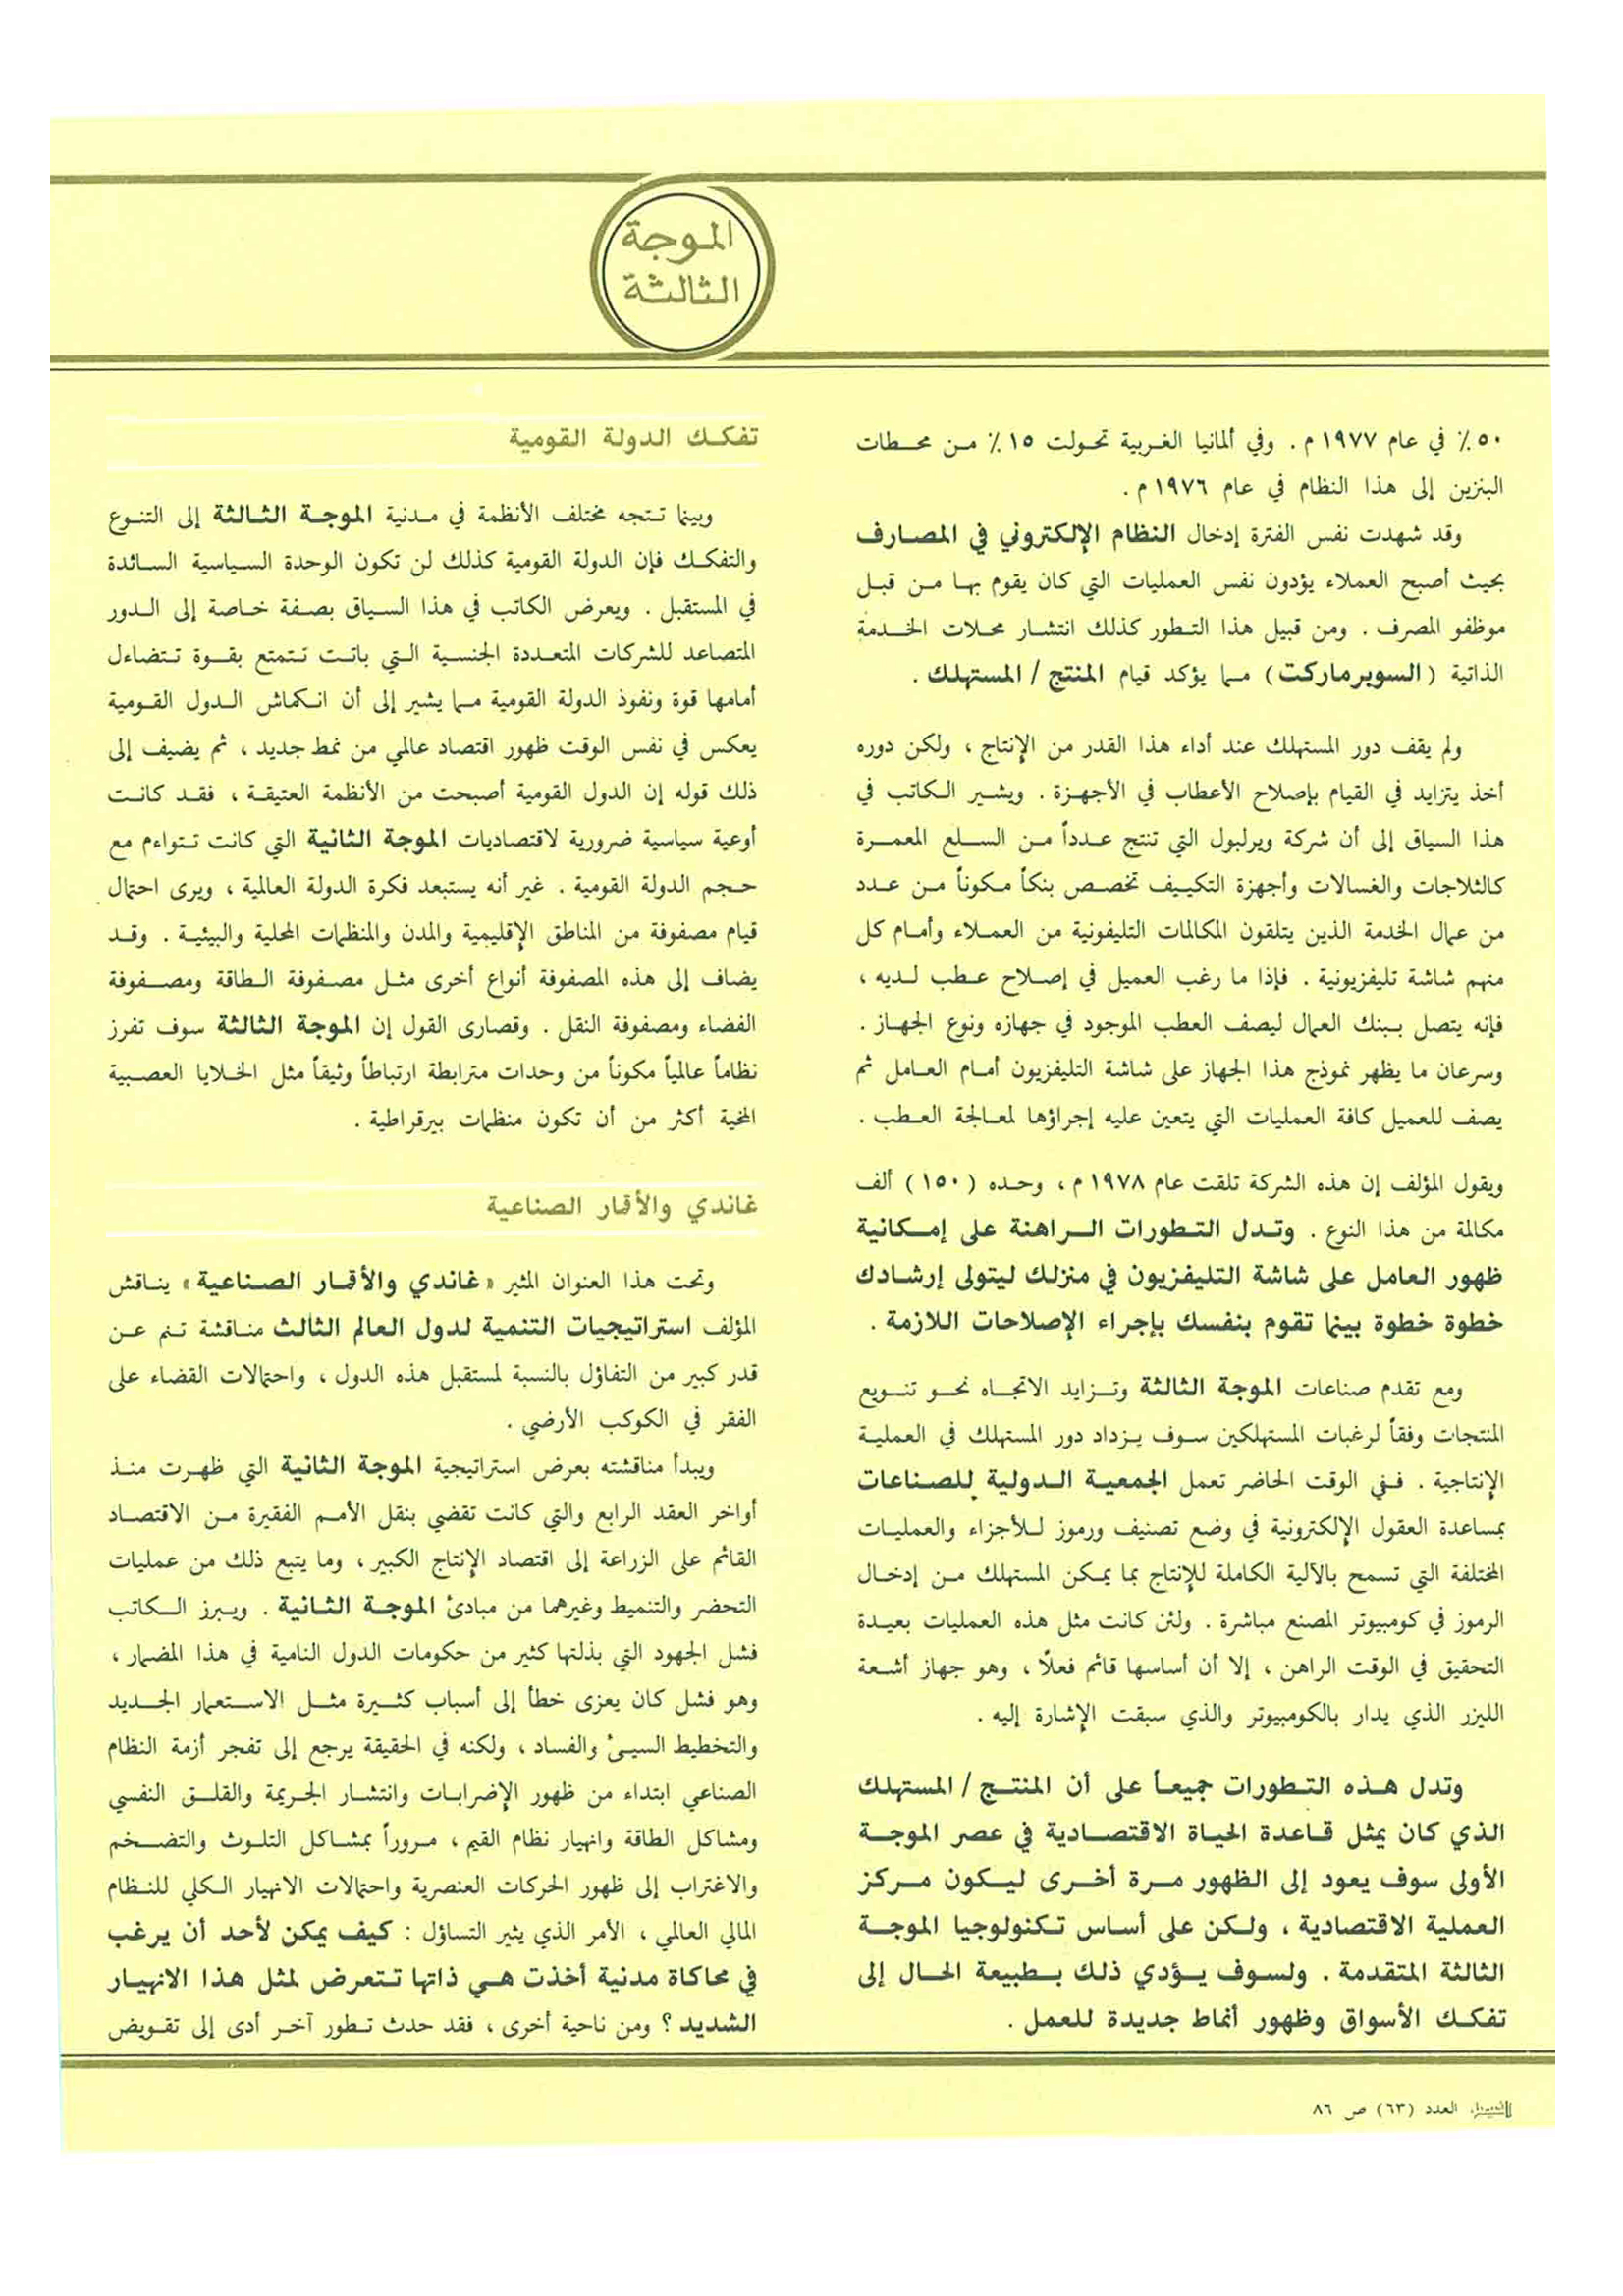 الموجة
الثالثة
٥٠ ٪ في عام ١٩٧٧ م . وفي ألمانيا الغربية تحولت ١٥ ٪ من محطات
البنزين إلى هذا النظام في عام ١٩٧٦ م .
وقد شهدت نفس الفترة إدخال النظام الإلكتروني في المصارف
بحيث أصبح العملاء يؤدون نفس العمليات التي كان يقوم بها من قبل
موظفو المصرف . ومن قبيل هذا التطور كذلك انتشار محلات الخدمة
الذاتية ( السوبرماركت ) مما يؤكد قيام المنتج / المستهلك .
ولم يقف دور المستهلك عند أداء هذا القدر من الإنتاج ، ولكن دوره
أخذ يتزايد في القيام بإصلاح الأعطاب في الأجهزة . ويشير الكاتب في
هذا السياق إلى أن شركة ويرلبول التي تنتج عدداً من السلع المعمرة
كالثلاجات والغسالات وأجهزة التكييف تخصص بنكاً مكوناً من عدد
من عمال الخدمة الذين يتلقون المكالمات التليفونية من العملاء وأمام كل
منهم شاشة تليفزيونية . فإذا ما رغب العميل في إصلاح عطب لديه ،
فإنه يتصل ببنك العمال ليصف العطب الموجود في جهازه ونوع الجهاز .
وسرعان ما يظهر نموذج هذا الجهاز على شاشة التليفزيون أمام العامل ثم
يصف للعميل كافة العمليات التي يتعين عليه إجراؤها لمعالجة العطب .
ويقول المؤلف إن هذه الشركة تلقت عام ١٩٧٨ م ، وحده ( ١٥٠ ) ألف
مكالمة من هذا النوع . وتدل التطورات الراهنة على إمكانية
ظهور العامل على شاشة التليفزيون في منزلك ليتولى إرشادك
خطوة خطوة بينما تقوم بنفسك بإجراء الإصلاحات اللازمة .
ومع تقدم صناعات الموجة الثالثة وتزايد الاتجاه نحو تنويع
المنتجات وفقاً لرغبات المستهلكين سوف يزداد دور المستهلك في العملية
الإنتاجية . ففي الوقت الحاضر تعمل الجمعية الدولية للصناعات
بمساعدة العقول الإلكترونية في وضع تصنيف ورموز للأجزاء والعمليات
المختلفة التي تسمح بالآلية الكاملة للإنتاج بما يمكن المستهلك من إدخال
الرموز في كومبيوتر المصنع مباشرة . ولئن كانت مثل هذه العمليات بعيدة
التحقيق في الوقت الراهن ، إلا أن أساسها قائم فعلًا ، وهو جهاز أشعة
الليزر الذي يدار بالكومبيوتر والذي سبقت الإشارة إليه .
وتدل هذه التطورات جميعاً على أن المنتج / المستهلك
الذي كان يمثل قاعدة الحياة الاقتصادية في عصر الموجة
الأولى سوف يعود إلى الظهور مرة أخرى ليكون مركز
العملية الاقتصادية ، ولكن على أساس تكنولوجيا الموجة
الثالثة المتقدمة . ولسوف يؤدي ذلك بطبيعة الحال إلى
تفكك الأسواق وظهور أنماط جديدة للعمل .
تفكك الدولة القومية
وبينما تتجه مختلف الأنظمة في مدنية الموجة الثالثة إلى التنوع
والتفكك فإن الدولة القومية كذلك لن تكون الوحدة السياسية السائدة
في المستقبل . ويعرض الكاتب في هذا السياق بصفة خاصة إلى الدور
المتصاعد للشركات المتعددة الجنسية التي باتت تتمتع بقوة تتضاءل
أمامها قوة ونفوذ الدولة القومية مما يشير إلى أن انكماش الدول القومية
يعكس في نفس الوقت ظهور اقتصاد عالمي من نمط جديد ، ثم يضيف إلى
ذلك قوله إن الدول القومية أصبحت من الأنظمة العتيقة ، فقد كانت
أوعية سياسية ضرورية لاقتصاديات الموجة الثانية التي كانت تتواءم مع
حجم الدولة القومية . غير أنه يستبعد فكرة الدولة العالمية ، ويرى احتمال
قيام مصفوفة من المناطق الإقليمية والمدن والمنظمات المحلية والبيئية . وقد
يضاف إلى هذه المصفوفة أنواع أخرى مثل مصفوفة الطاقة ومصفوفة
الفضاء ومصفوفة النقل . وقصارى القول إن الموجة الثالثة سوف تفرز
نظاماً عالمياً مكوناً من وحدات مترابطة ارتباطاً وثيقاً مثل الخلايا العصبية
المخية أكثر من أن تكون منظمات بيرقراطية .
غاندي والأقمار الصناعية
وتحت هذا العنوان المثير « غاندي والأقمار الصناعية » يناقش
المؤلف استراتيجيات التنمية لدول العالم الثالث مناقشة تنم عن
قدر كبير من التفاؤل بالنسبة لمستقبل هذه الدول ، واحتمالات القضاء على
الفقر في الكوكب الأرضي .
ويبدأ مناقشته بعرض استراتيجية الموجة الثانية التي ظهرت منذ
أواخر العقد الرابع والتي كانت تقضي بنقل الأمم الفقيرة من الاقتصاد
القائم على الزراعة إلى اقتصاد الإنتاج الكبير ، وما يتبع ذلك من عمليات
التحضر والتنميط وغيرهما من مبادئ الموجة الثانية . ويبرز الكاتب
فشل الجهود التي بذلتها كثير من حكومات الدول النامية في هذا المضمار ،
وهو فشل كان يعزى خطأ إلى أسباب كثيرة مثل الاستعمار الجديد
والتخطيط السيئ والفساد ، ولكنه في الحقيقة يرجع إلى تفجر أزمة النظام
الصناعي ابتداء من ظهور الإضرابات وانتشار الجريمة والقلق النفسي
ومشاكل الطاقة وانهيار نظام القيم ، مروراً بمشاكل التلوث والتضخم
والاغتراب إلى ظهور الحركات العنصرية واحتمالات الانهيار الكلي للنظام
المالي العالمي ، الأمر الذي يثير التساؤل : كيف يمكن لأحد أن يرغب
في محاكاة مدنية أخذت هي ذاتها تتعرض لمثل هذا الانهيار
الشديد ؟ ومن ناحية أخرى ، فقد حدث تطور آخر أدى إلى تقويض
الفيصل العدد (٦٣) ص ٨٦